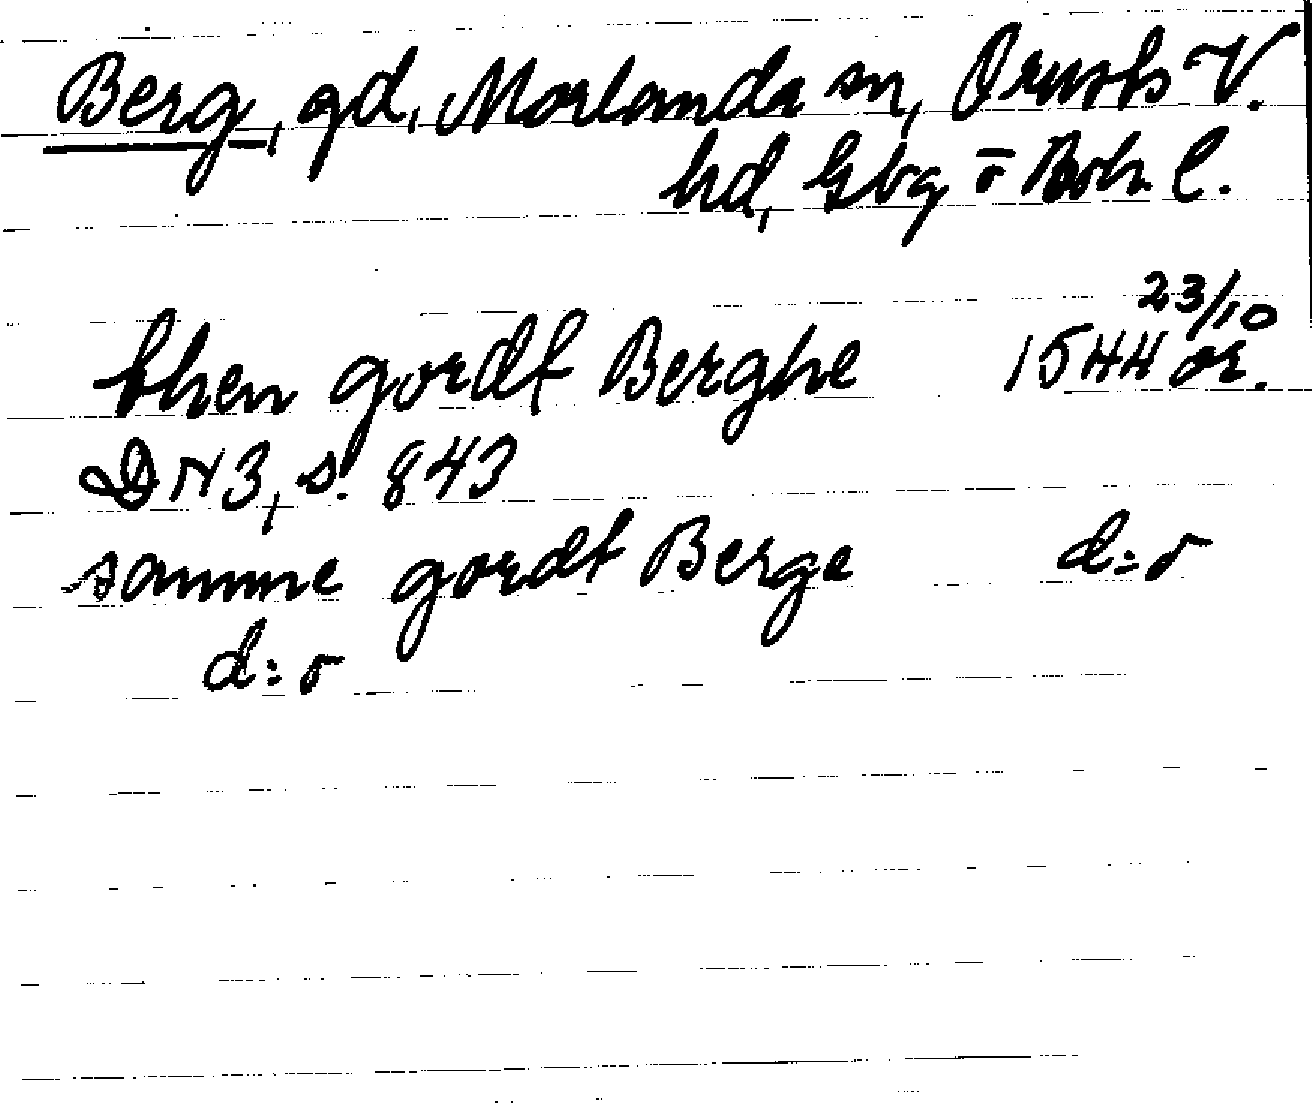 Berg, gd, Morlanda sn, Orusts V.
hd, Gbg o Boh. l.
then gordt Berghe 1544 23/10 or.
DN 3, s. 843
samme gordt Berge d:o
d:o